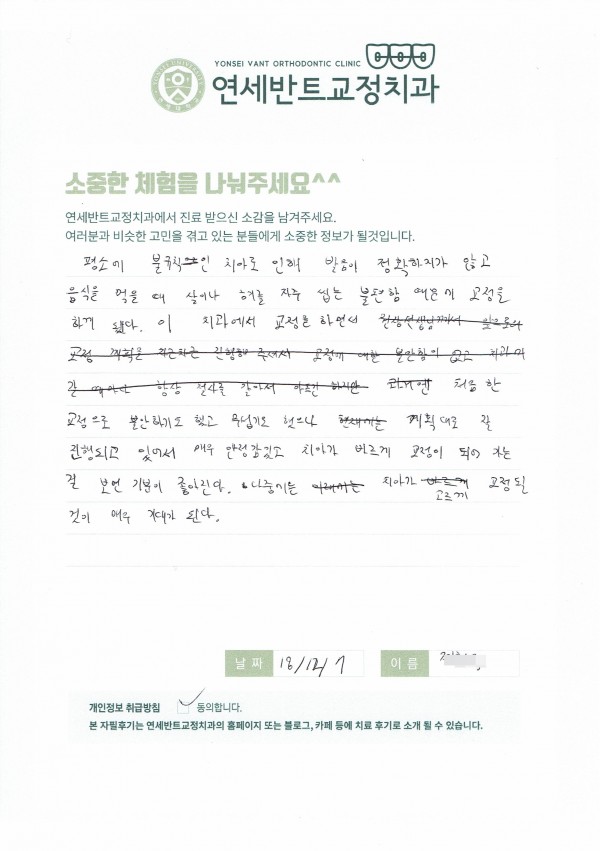 YONSEI VANT ORTHODONTIC CLINIC
연세반트교정치과
소중한 체험을 나눠주세요^^
연세반트교정치과에서 진료 받으신 소감을 남겨주세요.
여러분과 비슷한 고민을 겪고 있는 분들에게 소중한 정보가 될것입니다.
평소에 불규칙인 치아로 인해 발음이 정확하지가 않고
음식을 먹을 때 살이나 혀를 자주 씹는 불편함 때문에 교정을
하게 됐다. 이 치과에서 교정을 하면서 원장선생님께서 앞으로의
교정 계획을 차근차근 진행해 주셔서 교정에 대한 불안함이 없고 치과에
갈 때마다 항상 하지만 처음 한
교정으로 불안하기도 했고 무섭기도 했으나 현재에는 계획대로 잘
진행되고 있어서 매우 안정감있고 치아가 바르게 교정이 되어 가는
걸 보면 기분이 좋아진다. 나중에는 미래에는 치아가 바르게 교정될
고르게
것이 매우 기대가 된다.
날짜 18/12/7 이름
개인정보 취급방침 동의합니다.
본 자필후기는 연세반트교정치과의 홈페이지 또는 블로그, 카페 등에 치료 후기로 소개 될 수 있습니다.